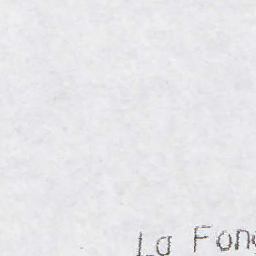 La Fon